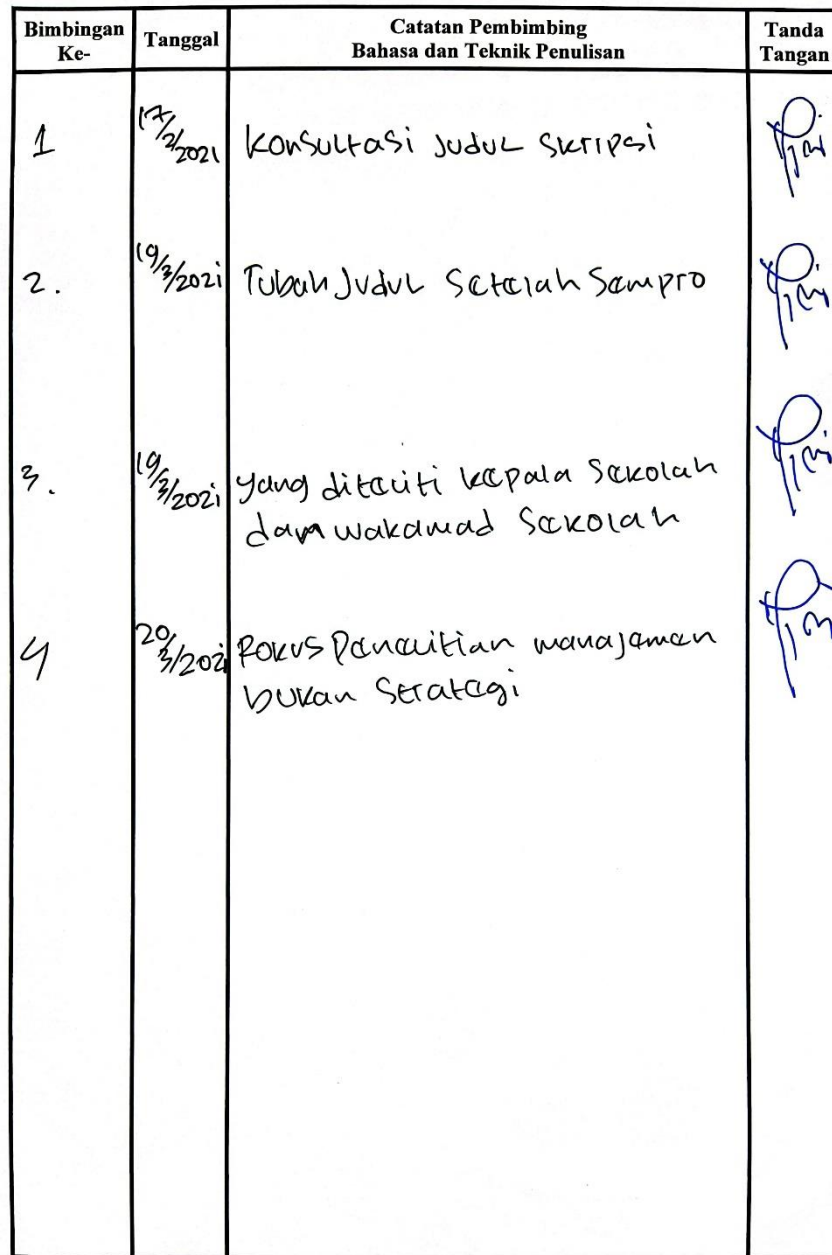 Bimbingan Ke-
Tanggal
Catatan Pembimbing
Bahasa dan Teknik Penulisan
Tanda Tangan
1 17/2/2021 Konsultasi Judul Skripsi
2. 19/3/2021 Tubah Judul Setelah Sempro
3. 19/3/2021 yang diteliti kepala Sekolah
dam wakamad Sekolah
4 20/3/202 Fokus Penelitian manajemen
bukan Strategi